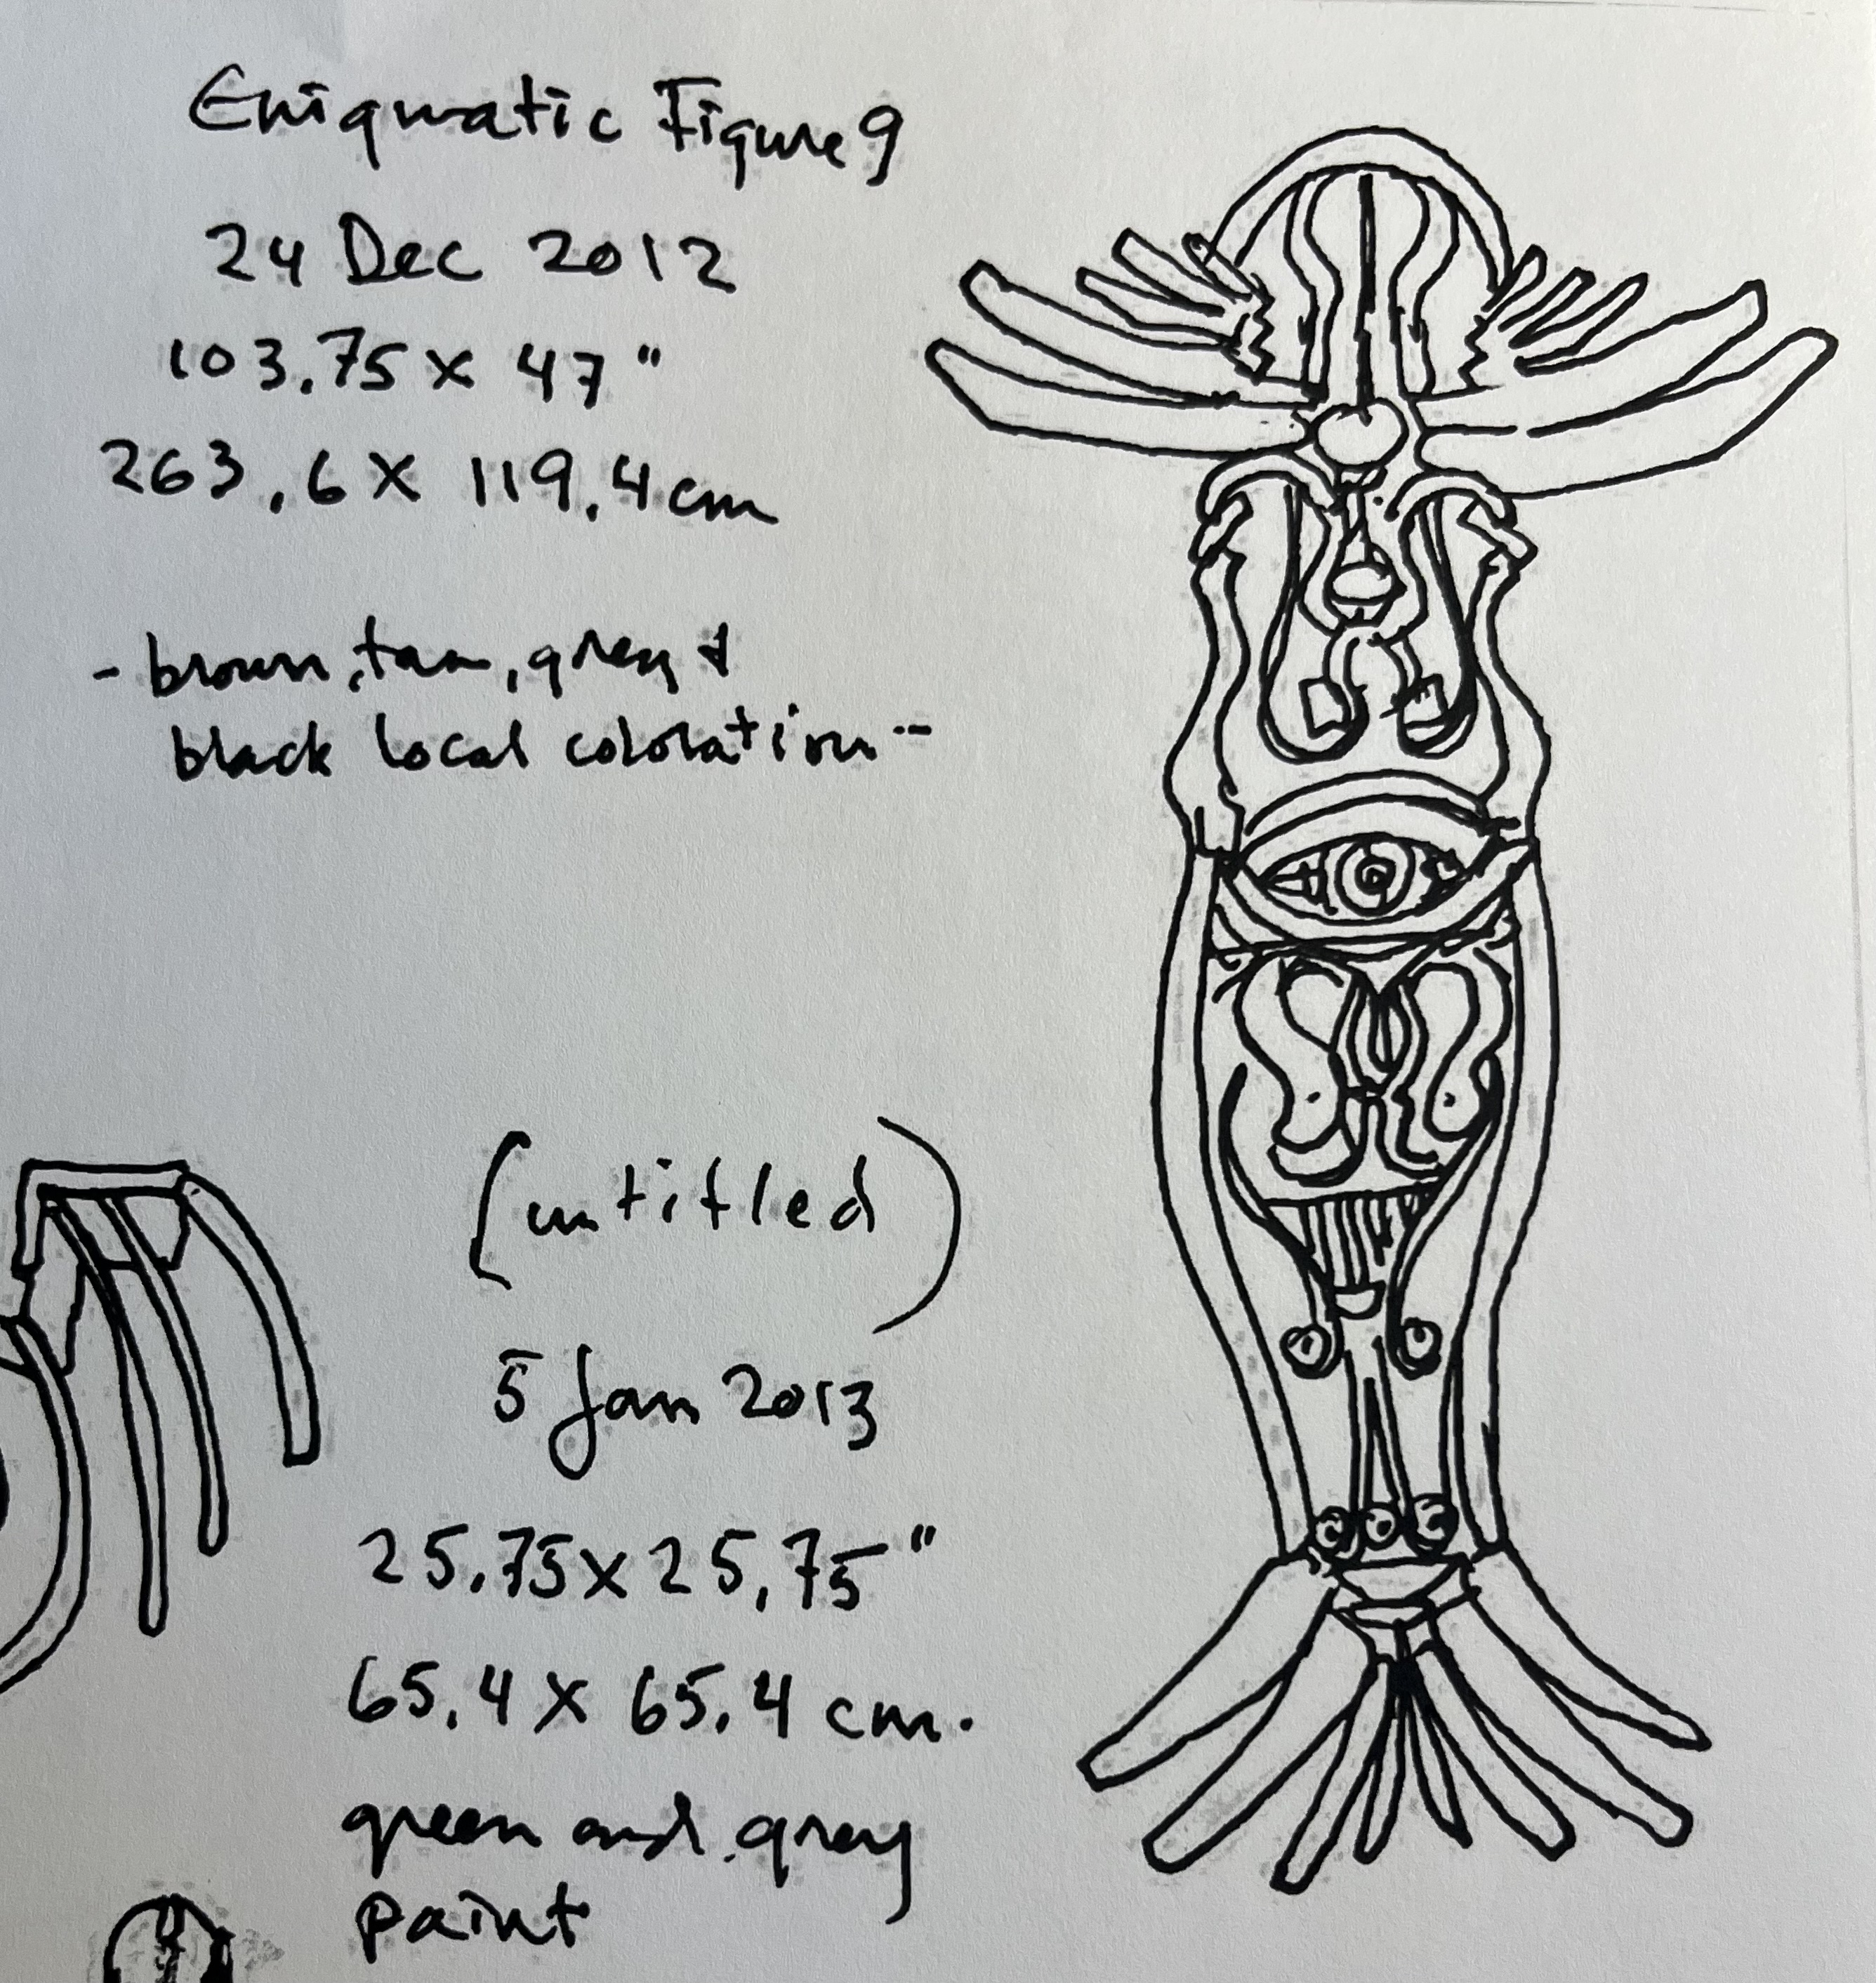 Enigmatic Figure 9
24 Dec 2012
103.75 x 47"
263.6 x 119.4 cm
- brown, tan, grey &
black local coloration -
(untitled)
5 Jan 2013
25.75 x 25.75"
65.4 x 65.4 cm.
green and grey
paint